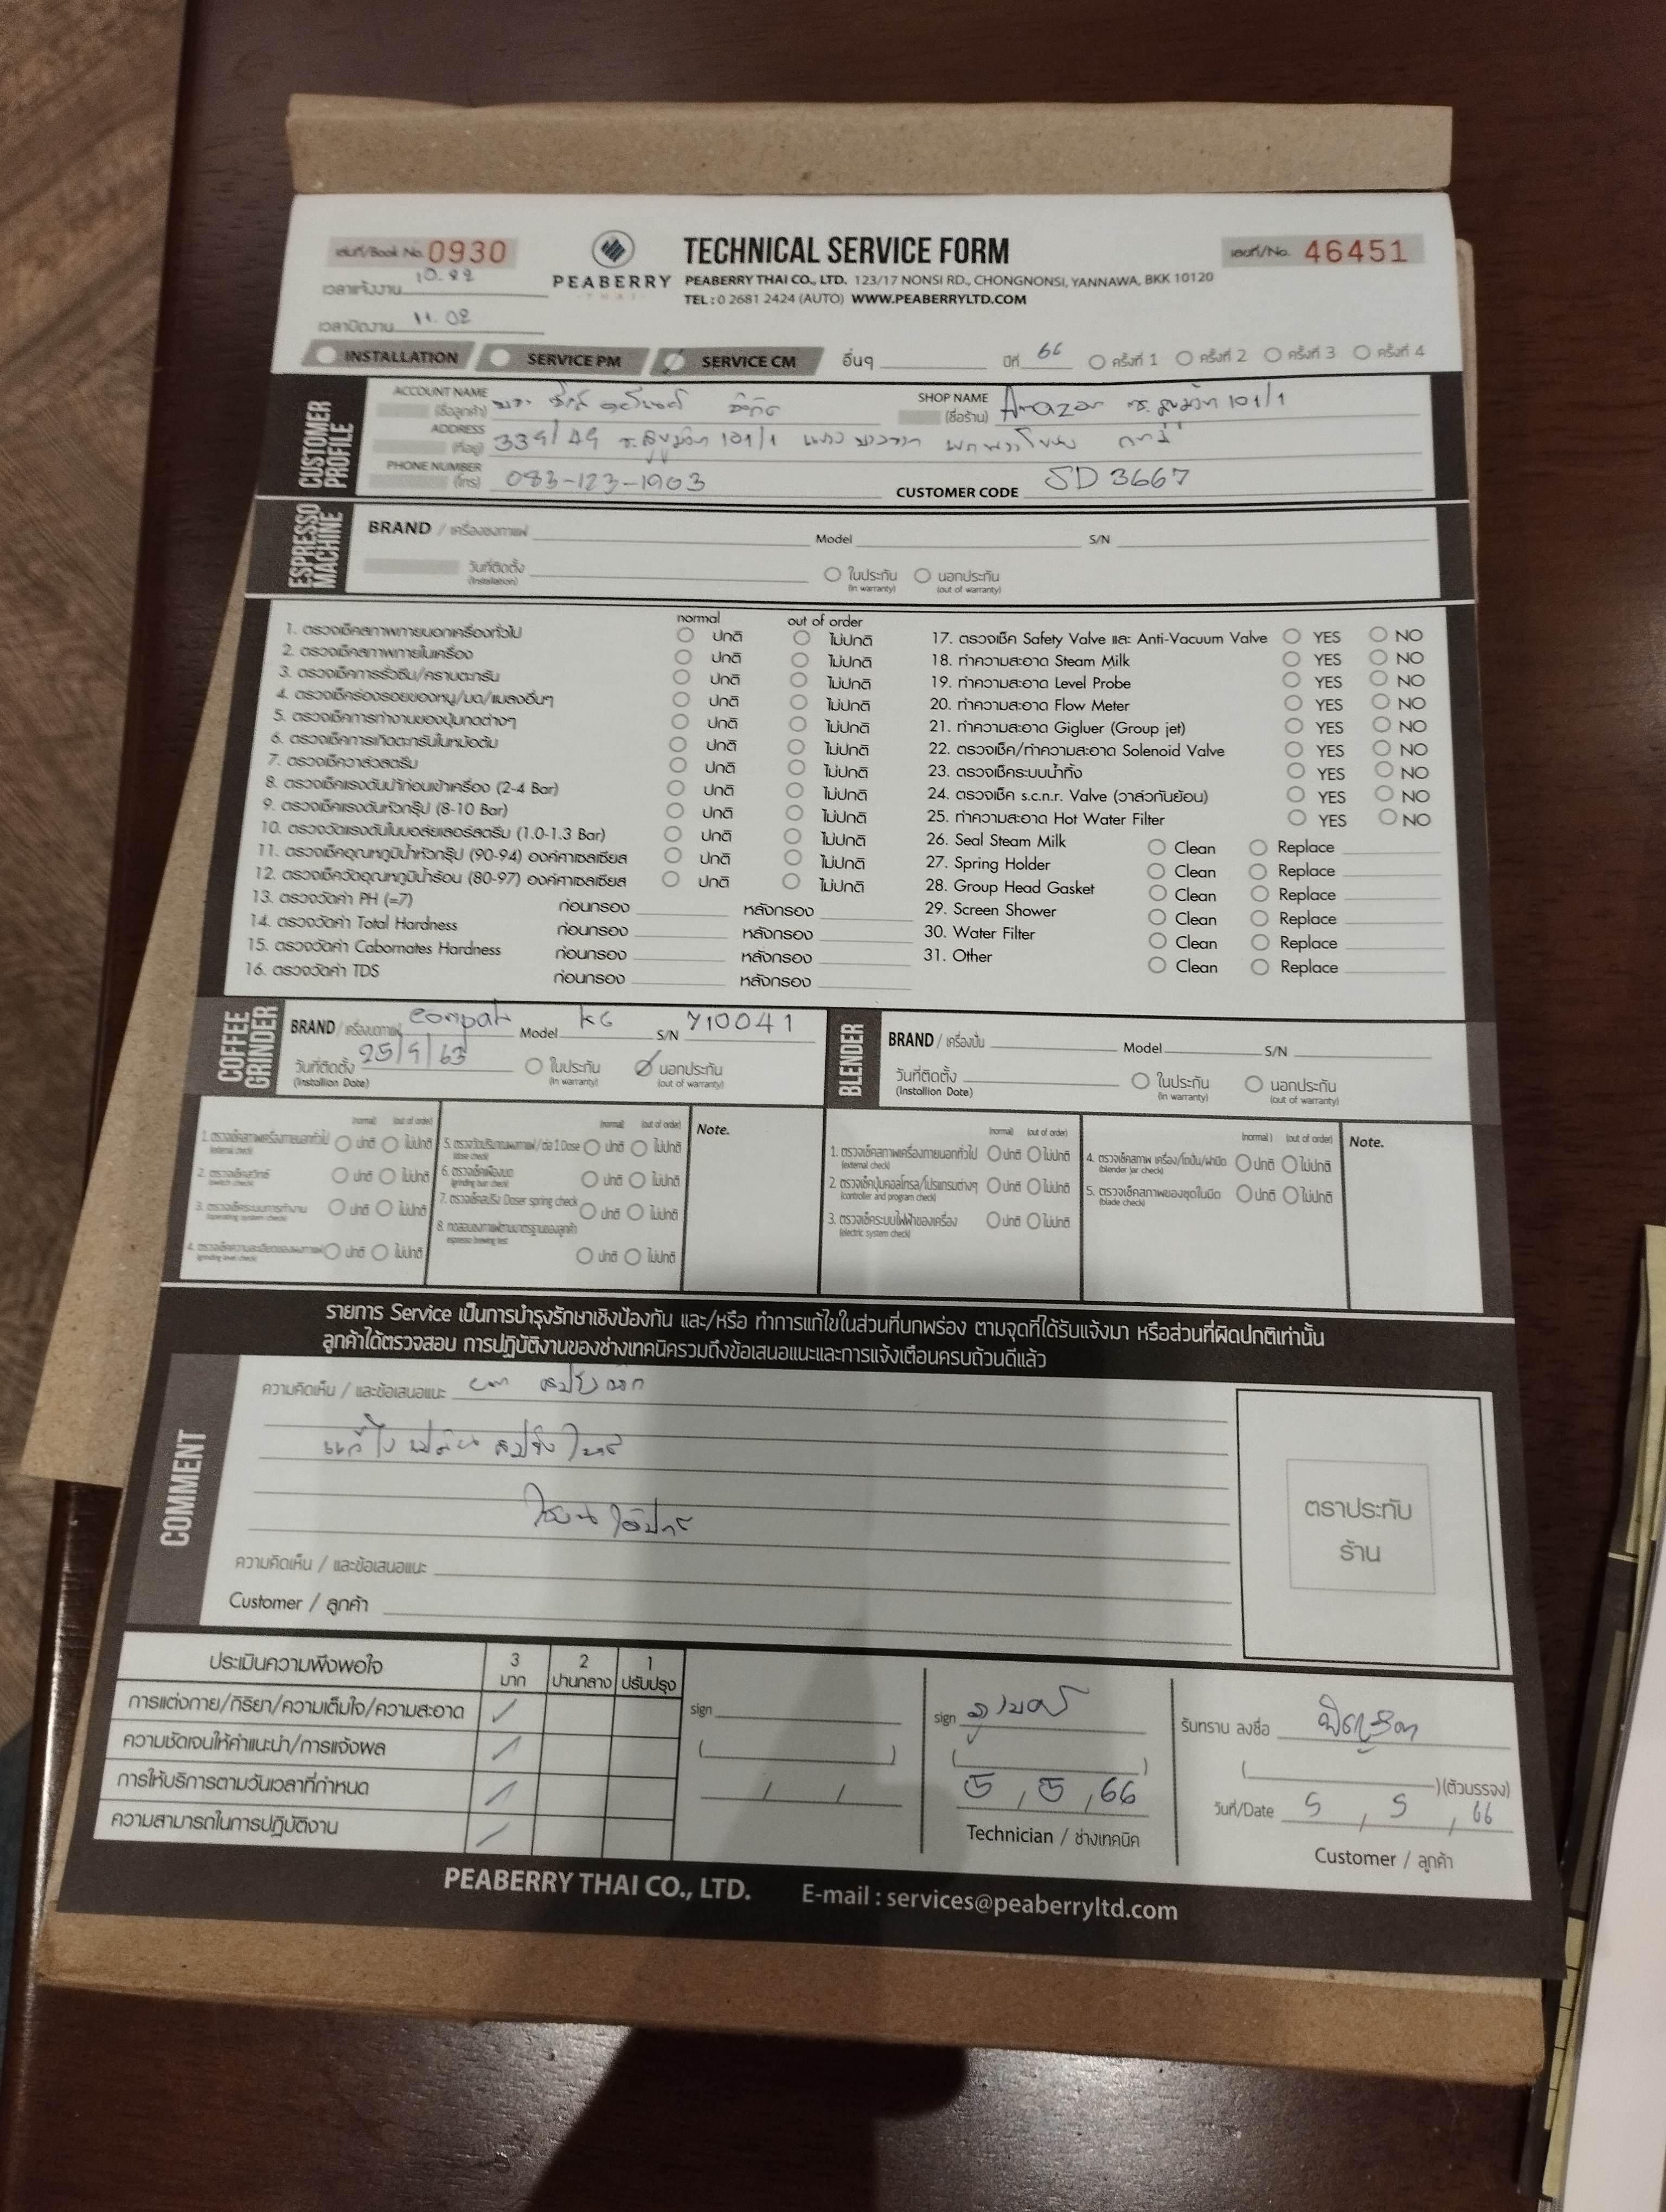 เล่มที่/Book No. 0930
PEABERRY
THAI
TECHNICAL SERVICE FORM
PEABERRY THAI CO., LTD. 123/17 NONSI RD., CHONGNONSI, YANNAWA, BKK 10120
TEL : 0 2681 2424 (AUTO) WWW.PEABERRYLTD.COM
เลขที่/No. 46451
เวลาแจ้งงาน
เวลาปิดงาน 11.02
INSTALLATION SERVICE PM SERVICE CM อื่นๆ ปีที่ 66 ครั้งที่ 1 ครั้งที่ 2 ครั้งที่ 3 ครั้งที่ 4
CUSTOMER PROFILE
ACCOUNT NAME (ชื่อลูกค้า)
SHOP NAME (ชื่อร้าน) Amazon ซ.สุขุมวิท 101/1
ADDRESS (ที่อยู่) 339/49 ซ.สุขุมวิท 101/1
PHONE NUMBER (โทร) 083-123-1903
CUSTOMER CODE SD 3667
ESPRESSO MACHINE
BRAND / เครื่องชงกาแฟ Model S/N
วันที่ติดตั้ง (Installation) ในประกัน (in warranty) นอกประกัน (out of warranty)
normal out of order
1. ตรวจเช็คสภาพภายนอกเครื่องทั่วไป ปกติ ไม่ปกติ
2. ตรวจเช็คสภาพภายในเครื่อง ปกติ ไม่ปกติ
3. ตรวจเช็คการรั่วซึม/คราบตะกรัน ปกติ ไม่ปกติ
4. ตรวจเช็คร่องรอยของหนู/มด/แมลงอื่นๆ ปกติ ไม่ปกติ
5. ตรวจเช็คการทำงานของปุ่มกดต่างๆ ปกติ ไม่ปกติ
6. ตรวจเช็คการเกิดตะกรันในหม้อต้ม ปกติ ไม่ปกติ
7. ตรวจเช็ควาล์วสตรีม ปกติ ไม่ปกติ
8. ตรวจเช็คแรงดันน้ำก่อนเข้าเครื่อง (2-4 Bar) ปกติ ไม่ปกติ
9. ตรวจเช็คแรงดันหัวกรุ๊ป (8-10 Bar) ปกติ ไม่ปกติ
10. ตรวจวัดแรงดันในบอล์ยเลอร์สตรีม (1.0-1.3 Bar) ปกติ ไม่ปกติ
11. ตรวจเช็คอุณหภูมิน้ำหัวกรุ๊ป (90-94) องค์ศาเซลเซียส ปกติ ไม่ปกติ
12. ตรวจเช็ควัดอุณหภูมิน้ำร้อน (80-97) องค์ศาเซลเซียส ปกติ ไม่ปกติ
13. ตรวจวัดค่า PH (=7) ก่อนกรอง หลังกรอง
14. ตรวจวัดค่า Total Hardness ก่อนกรอง หลังกรอง
15. ตรวจวัดค่า Cabornates Hardness ก่อนกรอง หลังกรอง
16. ตรวจวัดค่า TDS ก่อนกรอง หลังกรอง
17. ตรวจเช็ค Safety Valve และ Anti-Vacuum Valve YES NO
18. ทำความสะอาด Steam Milk YES NO
19. ทำความสะอาด Level Probe YES NO
20. ทำความสะอาด Flow Meter YES NO
21. ทำความสะอาด Gigluer (Group jet) YES NO
22. ตรวจเช็ค/ทำความสะอาด Solenoid Valve YES NO
23. ตรวจเช็คระบบน้ำทิ้ง YES NO
24. ตรวจเช็ค s.c.n.r. Valve (วาล์วกันย้อน) YES NO
25. ทำความสะอาด Hot Water Filter YES NO
26. Seal Steam Milk Clean Replace
27. Spring Holder Clean Replace
28. Group Head Gasket Clean Replace
29. Screen Shower Clean Replace
30. Water Filter Clean Replace
31. Other Clean Replace
COFFEE GRINDER
BRAND / เครื่องบดกาแฟ compak Model K6 S/N 710041
วันที่ติดตั้ง (Installion Date) 25/9/63 ในประกัน (in warranty) นอกประกัน (out of warranty)
BLENDER
BRAND / เครื่องปั่น Model S/N
วันที่ติดตั้ง (Installion Date) ในประกัน (in warranty) นอกประกัน (out of warranty)
(normal) (out of order)
1. ตรวจเช็คสภาพเครื่องภายนอกทั่วไป (external check) ปกติ ไม่ปกติ
2. ตรวจเช็คสวิทซ์ (switch check) ปกติ ไม่ปกติ
3. ตรวจเช็คระบบการทำงาน (operating system check) ปกติ ไม่ปกติ
4. ตรวจเช็คความละเอียดของผงกาแฟ (grinding level check) ปกติ ไม่ปกติ
(normal) (out of order)
5. ตรวจวัดปริมาณผงกาแฟ/ต่อ 1 Dose (dose check) ปกติ ไม่ปกติ
6. ตรวจเช็คเฟืองบด (grinding burr check) ปกติ ไม่ปกติ
7. ตรวจเช็คสปริง Doser spring check ปกติ ไม่ปกติ
8. ทดสอบชงกาแฟตามมาตรฐานของลูกค้า espresso brewing test ปกติ ไม่ปกติ
Note.
(normal) (out of order)
1. ตรวจเช็คสภาพเครื่องภายนอกทั่วไป (external check) ปกติ ไม่ปกติ
2. ตรวจเช็คปุ่มคอลโทรล/โปรแกรมต่างๆ (controller and program check) ปกติ ไม่ปกติ
3. ตรวจเช็คระบบไฟฟ้าของเครื่อง (electric system check) ปกติ ไม่ปกติ
(normal) (out of order)
4. ตรวจเช็คสภาพ เครื่อง/โถปั่น/ฝาปิด (blender jar check) ปกติ ไม่ปกติ
5. ตรวจเช็คสภาพของชุดใบมีด (blade check) ปกติ ไม่ปกติ
Note.
รายการ Service เป็นการบำรุงรักษาเชิงป้องกัน และ/หรือ ทำการแก้ไขในส่วนที่บกพร่อง ตามจุดที่ได้รับแจ้งมา หรือส่วนที่ผิดปกติเท่านั้น
ลูกค้าได้ตรวจสอบ การปฏิบัติงานของช่างเทคนิครวมถึงข้อเสนอแนะและการแจ้งเตือนครบถ้วนดีแล้ว
COMMENT
ความคิดเห็น / และข้อเสนอแนะ
แก้ไข เปลี่ยน สปริง ใหม่
ใช้งาน ได้ปกติ
ความคิดเห็น / และข้อเสนอแนะ
Customer / ลูกค้า
ตราประทับ
ร้าน
ประเมินความพึงพอใจ 3 มาก 2 ปานกลาง 1 ปรับปรุง
การแต่งกาย/กิริยา/ความเต็มใจ/ความสะอาด
ความชัดเจนให้คำแนะนำ/การแจ้งผล
การให้บริการตามวันเวลาที่กำหนด
ความสามารถในการปฏิบัติงาน
sign
sign
5 , 5 , 66
Technician / ช่างเทคนิค
รับทราบ ลงชื่อ
(ตัวบรรจง)
วันที่/Date 5 , 5 , 66
Customer / ลูกค้า
PEABERRY THAI CO., LTD. E-mail : services@peaberryltd.com